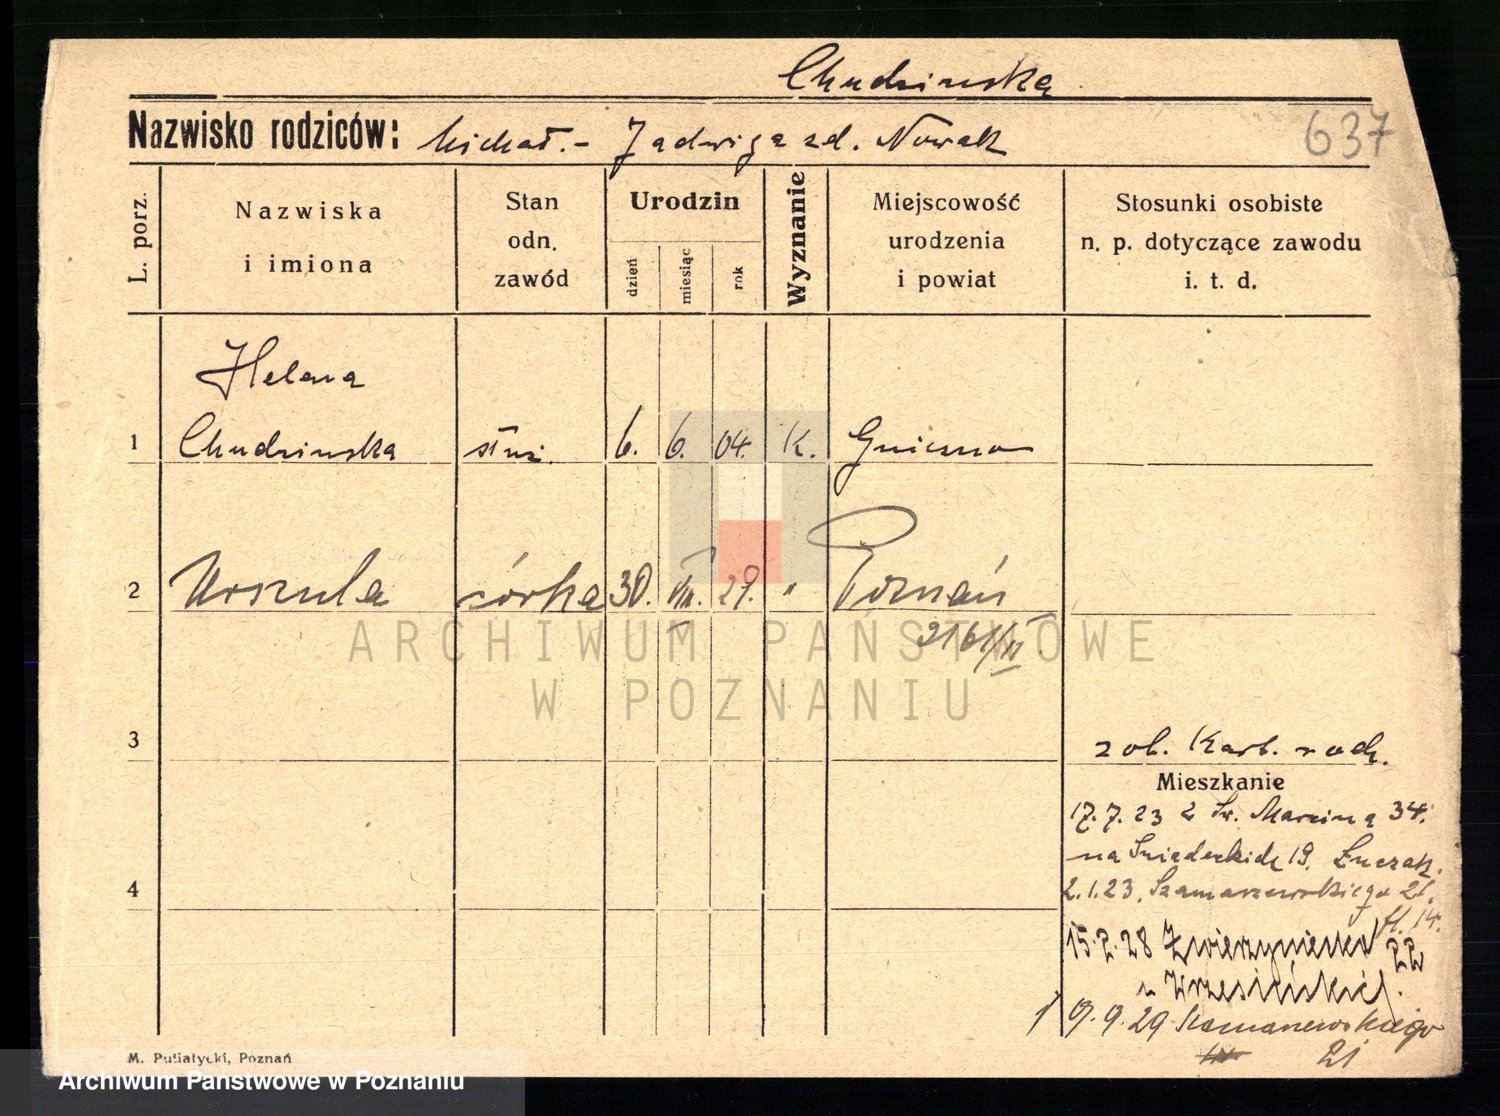 Chudzinska
Nazwisko rodziców: Michał.- Jadwiga zd. Nowak
637
L. porz.
Nazwiska
i imiona
Stan
odn.
zawód
Urodzin
dzień
miesiąc
rok
Wyznanie
Miejscowość
urodzenia
i powiat
Stosunki osobiste
n. p. dotyczące zawodu
i. t. d.
Helena
1 Chudzinska służ. 6. 6. 04. K. Gniezno
2 Urszula córka 30. VIII. 29. " Poznań
2161/II
ARCHIWUM PAŃSTWOWE
W POZNANIU
3
zob. Kart. rodz.
Mieszkanie
17.7.23 z Św. Marcina 34.
na Śniadeckich 19. Łuczak.
4
2.1.23. Szamarzewskiego 21.
15.2.28 Zwierzyniecka 22
u Wrzesińskiej.
9.9.29
21
M. Putiatycki, Poznań
Archiwum Państwowe w Poznaniu